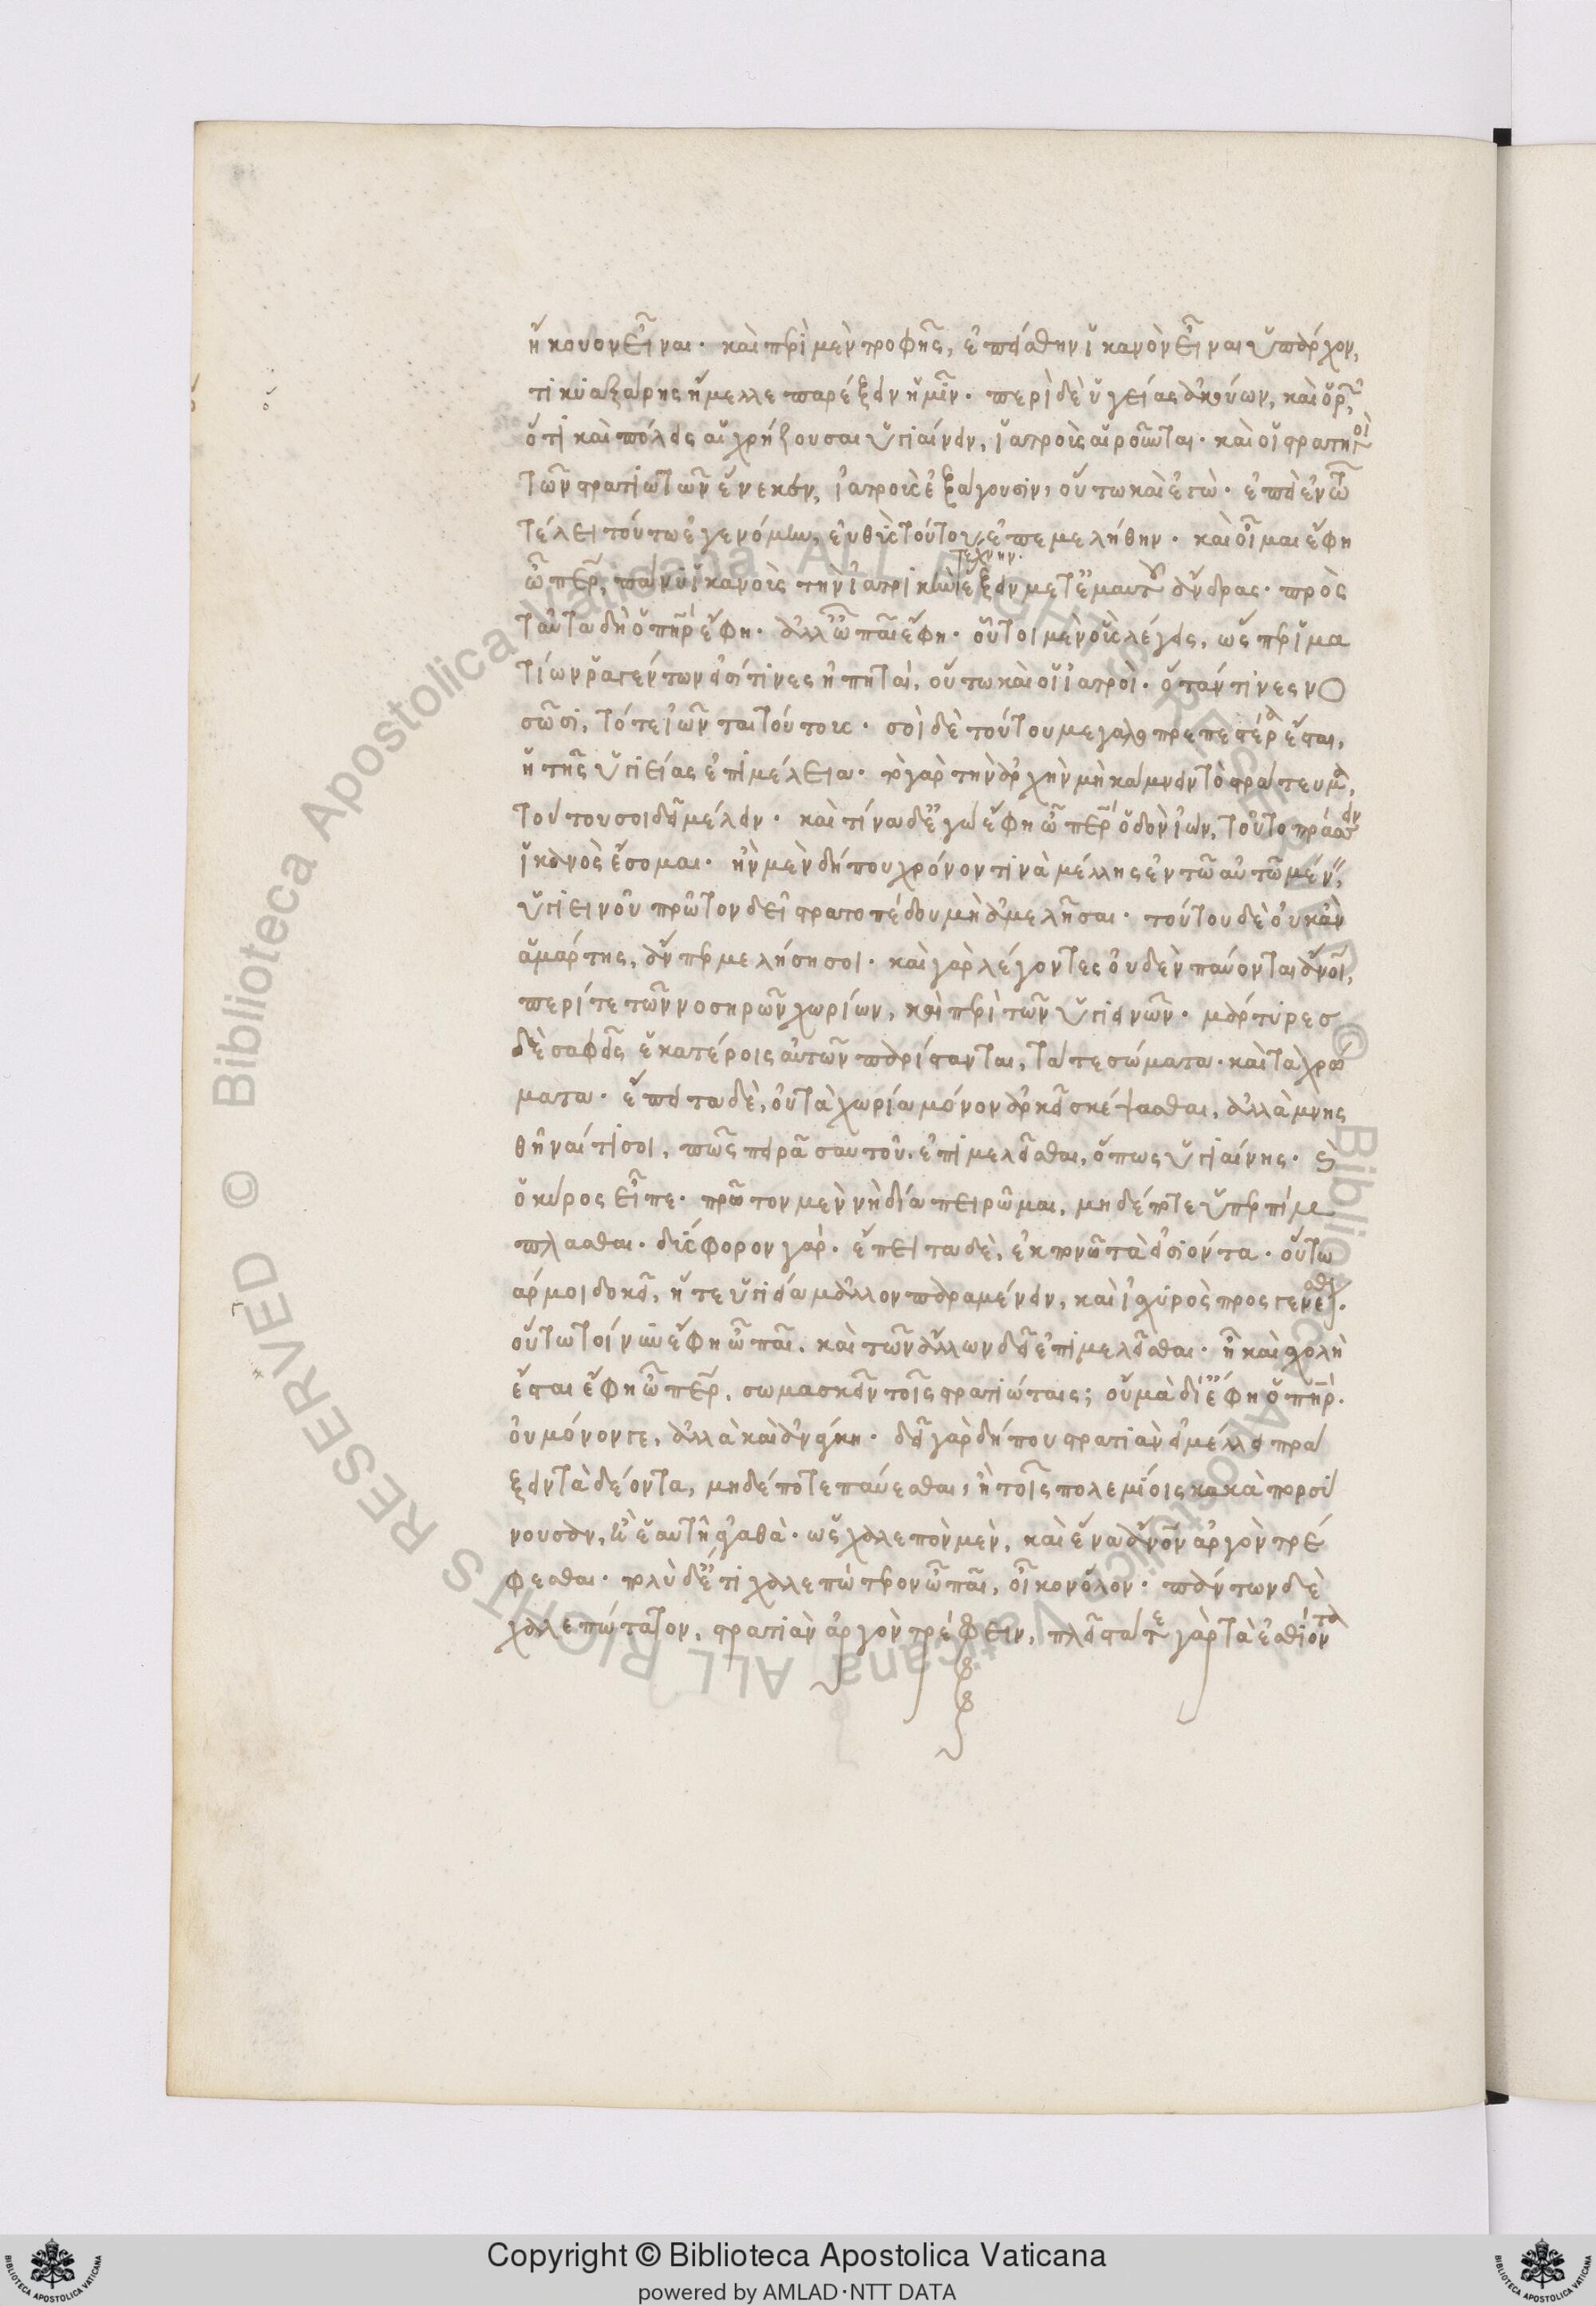 ἤκουον εἶναι· καὶ περὶ μὲν τροφῆς, ἐπείσθην ἱκανὸν εἶναι ὑπάρχον,
τι κυαξάρης ἤμελλε παρέξειν ἡμῖν· περὶ δὲ ὑγείας ἀκούων, καὶ ὁρῶν,
ὅτι καὶ πόλεις αἱ χρήζουσαι ὑγιαίνειν, ἰατροὺς αἱροῦνται· καὶ οἱ στρατηγοὶ
τῶν στρατιωτῶν ἕνεκεν, ἰατροὺς ἐξάγουσιν, οὕτω καὶ ἐγὼ· ἐπεὶ ἐν τῶ
τέλει τούτω ἐγενόμην, εὐθὺς τούτου ἐπεμελήθην· καὶ οἶμαι ἔφη
ὦ πάτερ, πάνυ ἱκανοὺς τὴν ἰατρικὴν τέχνην ἕξειν μετ' ἐμαυτοῦ ἄνδρας· πρὸς
ταῦτα δὴ ὁ πατὴρ ἔφη· ἀλλ' ὦ παῖ ἔφη· οὗτοι μὲν οὓς λέγεις, ὥσπερ ἱμα
τίων ῥαγέντων εἰσί τινες ἠπηταὶ, οὕτω καὶ οἱ ἰατροὶ· ὅταν τινες νο
σῶσι, τότε ἰῶνται τούτους· σοὶ δὲ τούτου μεγαλοπρεπεστέρα ἔσται,
ἡ τῆς ὑγιείας ἐπιμέλεια· τὸ γὰρ τὴν ἀρχὴν μὴ κάμνειν τὸ στράτευμα,
τούτου σοι δεῖ μέλειν· καὶ τίνα δὲ ἐγὼ ἔφη ὦ πάτερ ὁδὸν ἰὼν, τοῦτο πράσσειν
ἱκανὸς ἔσομαι· ἢν μὲν δήπου χρόνον τινὰ μέλλης ἐν τῶ αὐτῶ μένειν,
ὑγιεινοῦ πρῶτον δεῖ στρατοπέδου μὴ ἀμελῆσαι· τούτου δὲ οὐκ ἂν
ἁμάρτης, ἄνπερ μελήση σοι· καὶ γὰρ λέγοντες οὐδὲν παύονται ἄνθρωποι,
περί τε τῶν νοσηρῶν χωρίων, καὶ περὶ τῶν ὑγιεινῶν· μάρτυρες
δὲ σαφεῖς ἑκατέροις αὐτῶν παρίστανται, τά τε σώματα· καὶ τὰ χρώ
ματα· ἔπειτα δὲ, οὐ τὰ χωρία μόνον ἀρκεῖ σκέψασθαι, ἀλλὰ μνησ
θῆναί τι σοι, πῶς πειρᾶ σαυτοῦ ἐπιμελεῖσθαι, ὅπως ὑγιαίνης· καὶ
ὁ κῦρος εἶπε· πρῶτον μὲν νὴ δία πειρῶμαι, μηδέποτε ὑπερπίμ
πλασθαι· δύσφορον γάρ· ἔπειτα δὲ, ἐκπονῶ τὰ εἰσιόντα· οὕτω
γάρ μοι δοκεῖ, ἥ τε ὑγιεία μᾶλλον παραμένειν, καὶ ἰσχὺς προσγενέσθαι.
οὕτω τοίνυν ἔφη ὦ παῖ, καὶ τῶν ἄλλων δεῖ ἐπιμελεῖσθαι· ἦ καὶ σχολὴ
ἔσται ἔφη ὦ πάτερ, σωμασκεῖν τοῖς στρατιώταις; οὐ μὰ δί' ἔφη ὁ πατήρ.
οὐ μόνον γε, ἀλλὰ καὶ ἀνάγκη· δεῖ γὰρ δήπου στρατιὰν εἰ μέλλει πρά
ξειν τὰ δέοντα, μηδέποτε παύεσθαι, ἢ τοῖς πολεμίοις κακὰ πορσύ
νουσαν, ἢ ἑαυτῆ ἀγαθὰ· ὡς χαλεπὸν μὲν, καὶ ἕνα ἄνθρωπον ἀργὸν τρέ
φεσθαι· πολὺ δ' ἔτι χαλεπώτερον ὦ παῖ, οἶκον ὅλον· πάντων δὲ
χαλεπώτατον, στρατιὰν ἀργὸν τρέφειν, πλεῖστά τε γὰρ τὰ ἐσθίοντα